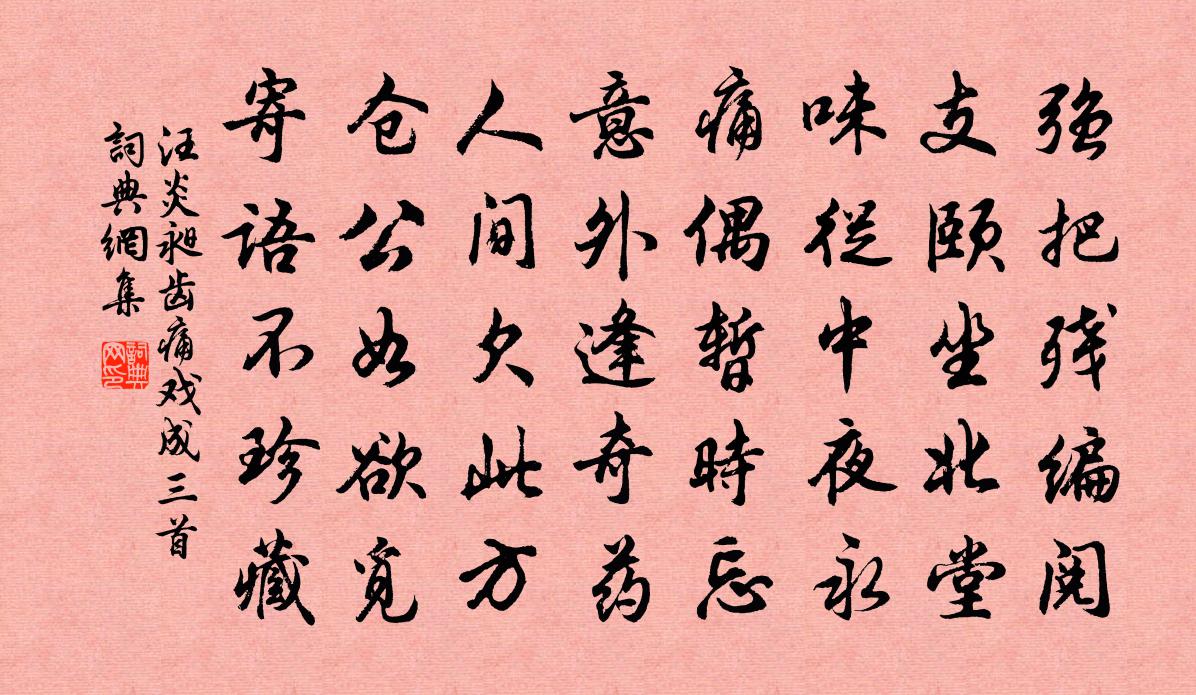 强把残编阅
支颐坐北堂
味从中夜永
痛偶暂時忘
意外逢奇药
人间欠此方
仓公如欲觅
寄语不珍藏
汪炎昶齿痛戏成三首
詞典網集
詞典网印